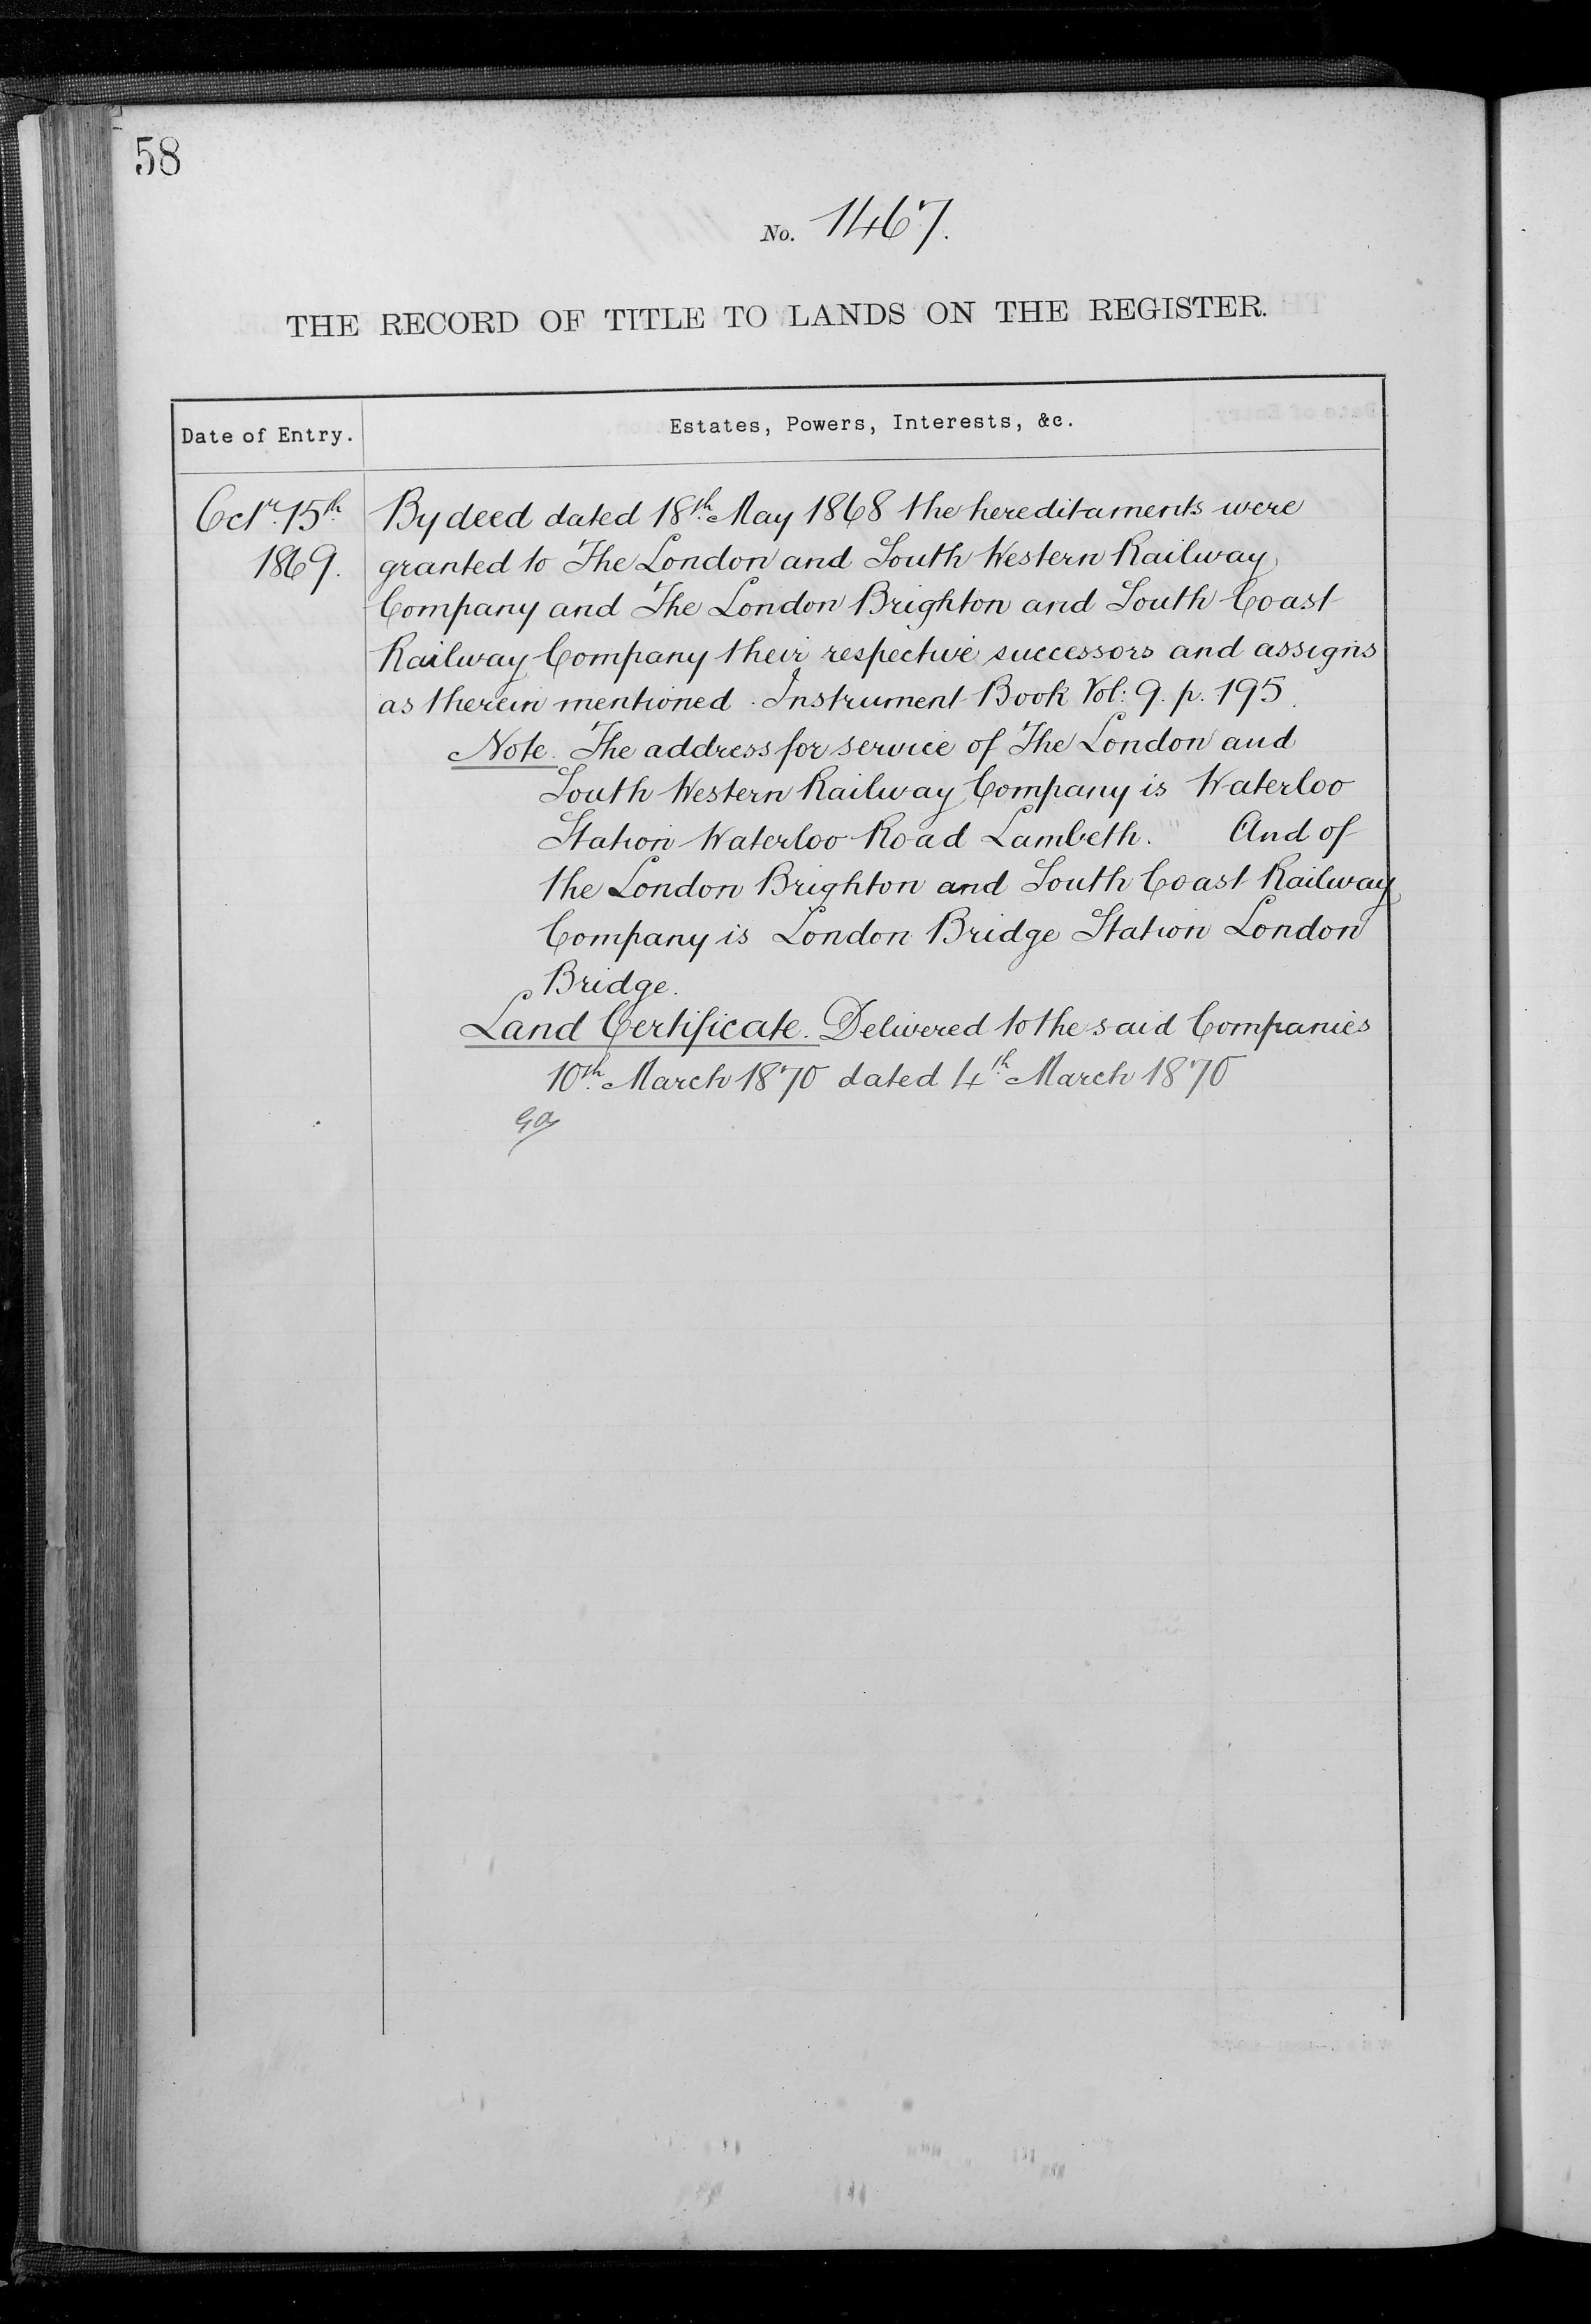 58
No. 1467.
THE RECORD OF TITLE TO LANDS ON THE REGISTER.
Date of Entry.
Estates, Powers, Interests, &c.
Octr. 15th
1869.
By deed dated 18th May 1868 the hereditaments were
granted to The London and South Western Railway
Company and The London Brighton and South Coast
Railway Company their respective successors and assigns
as therein mentioned. Instrument Book Vol: 9. p. 195.
Note. The address for service of The London and
South Western Railway Company is Waterloo
Station Waterloo Road Lambeth. And of
the London Brighton and South Coast Railway
Company is London Bridge Station London
Bridge.
Land Certificate. Delivered to the said Companies
10th March 1870 dated 4th March 1870